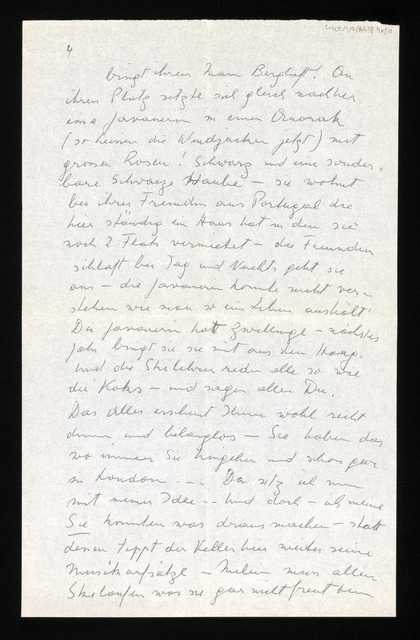 4
bringt ihren Mann Bergluft! An
ihren Platz setzte sich gleich nachher
eine Javanerin in einem Anorak
(so heissen die Windjacken jetzt) mit
grossen Rosen! Schwarz und eine sonder-
bare schwarze Haube – sie wohnt
bei ihrer Freundin aus Portugal die
hier ständig ein Haus hat in dem sie
noch 2 Flats vermietet – die Freundin
schläft bei Tag und Nachts geht sie
aus – die Javanerin konnte nicht ver-
stehen wie man so ein Leben aushält!
Die Javanerin hat Zwillinge – nächstes
Jahr bringt sie sie mit aus dem
Und die Skilehrer reden alle so wie
die – und sagen allen Du.
Das alles erscheint Ihnen wohl recht
dumm und belanglos – Sie haben das
wo immer Sie hingehen und schon gar
in London ... Da sitz ich nun
mit meiner Idee .. Und doch – ich meine
Sie könnten was draus machen – statt
dessen tippt der Keller hier wieder seine
Musikaufsätze – muss allein
Skilaufen was sie gar nicht freut